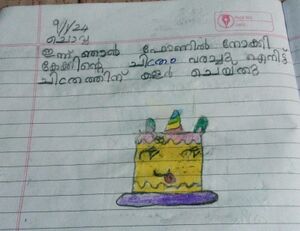 9/1/24
ചൊവ്വ
ഇന്ന് ഞാൻ ഫോണിൽ നോക്കി
കേക്കിന്റെ ചിത്രം വരച്ചു എന്നിട്ട്
ചിത്രത്തിന് കളർ ചെയ്തു